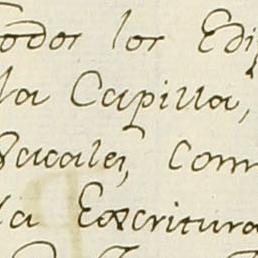 Todos los Edi
la Capilla,
Sacales, Com
la Escritura